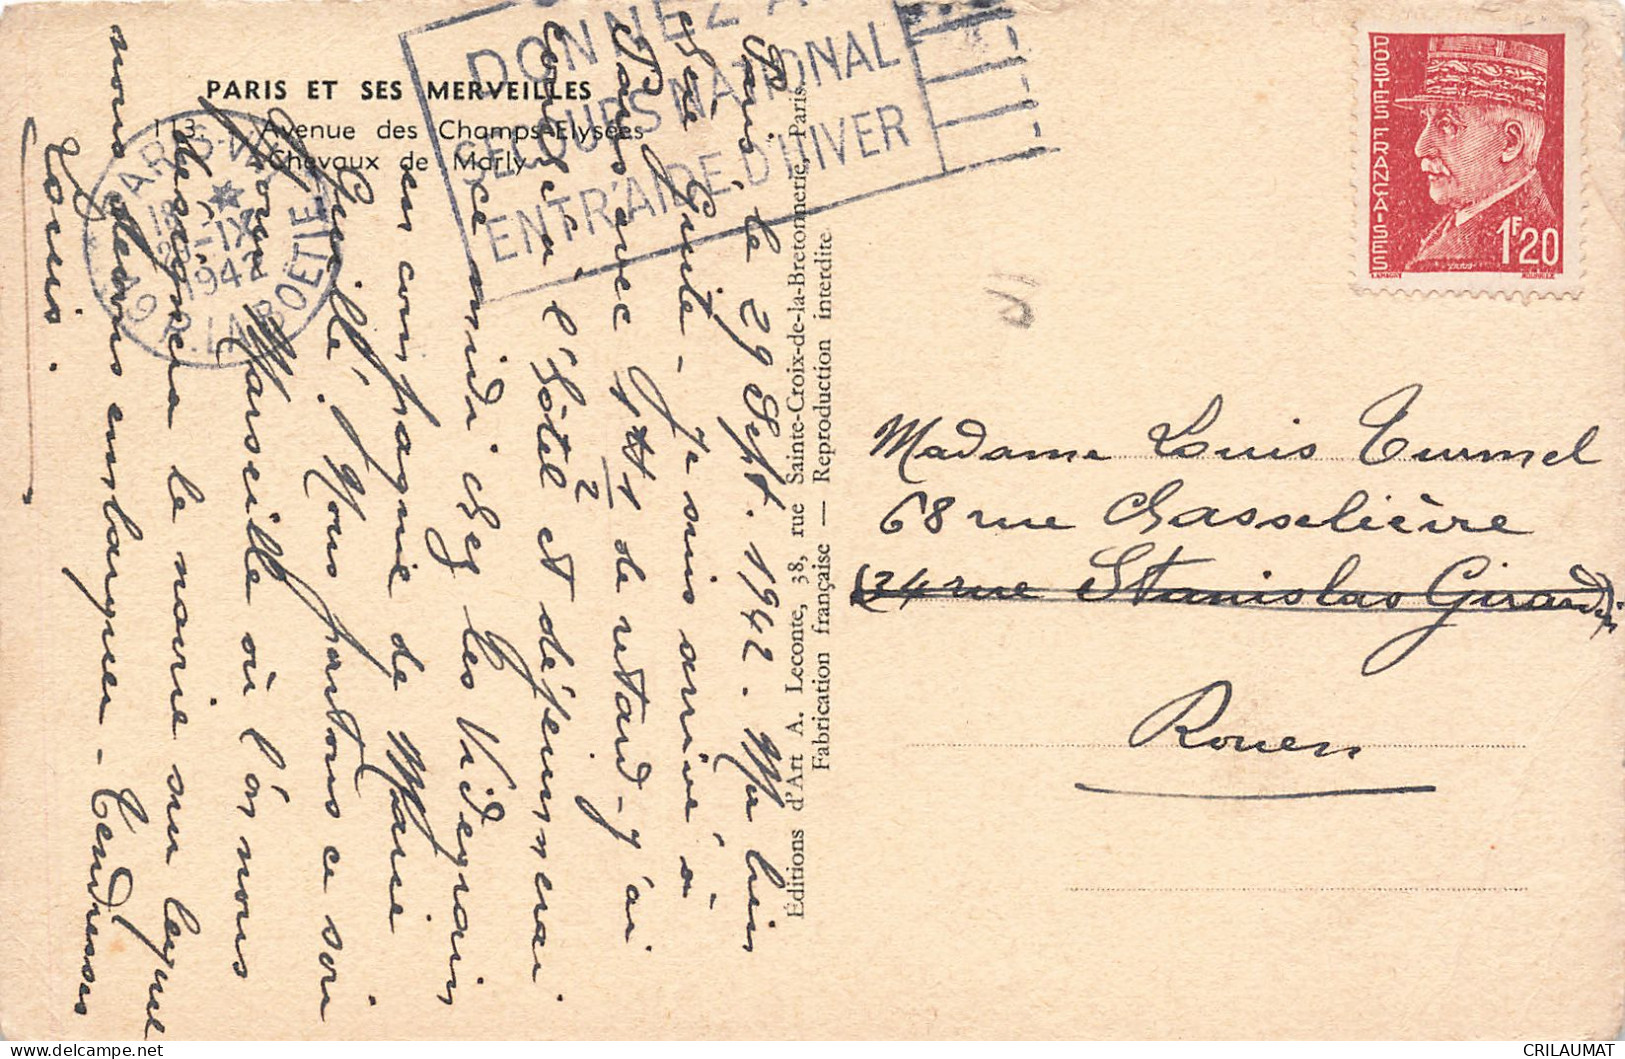 PARIS ET SES MERVEILLES
113. - Avenue des Champs-Elysées
Chevaux de Marly
DONNEZ A
SECOURS NATIONAL
ENTR'AIDE D'HIVER
PARIS-VIII
18
-IX
1942
49 R. LA BOETIE
POSTES FRANCAISES
1F20
Paris le 29 Sept. 1942. Ma bien
chère Guite - Je suis arrivé à
Paris avec 2 de retard - J'ai
couché à l'Hôtel et déjeunerai
ce midi chez les Videgrain
en compagnie de Marie
Nous partons ce soir
pour Marseille où l'on nous
désignera le navire sur lequel
nous devons embarquer - Tendresses
Louis.
Éditions d'Art A. Leconte, 38, rue Sainte-Croix-de-la-Bretonnerie, Paris
Fabrication française — Reproduction interdite
Madame Louis Turmel
68 rue Chasselièvre
(34 rue Stanislas Girardin)
Rouen
CRILAUMAT